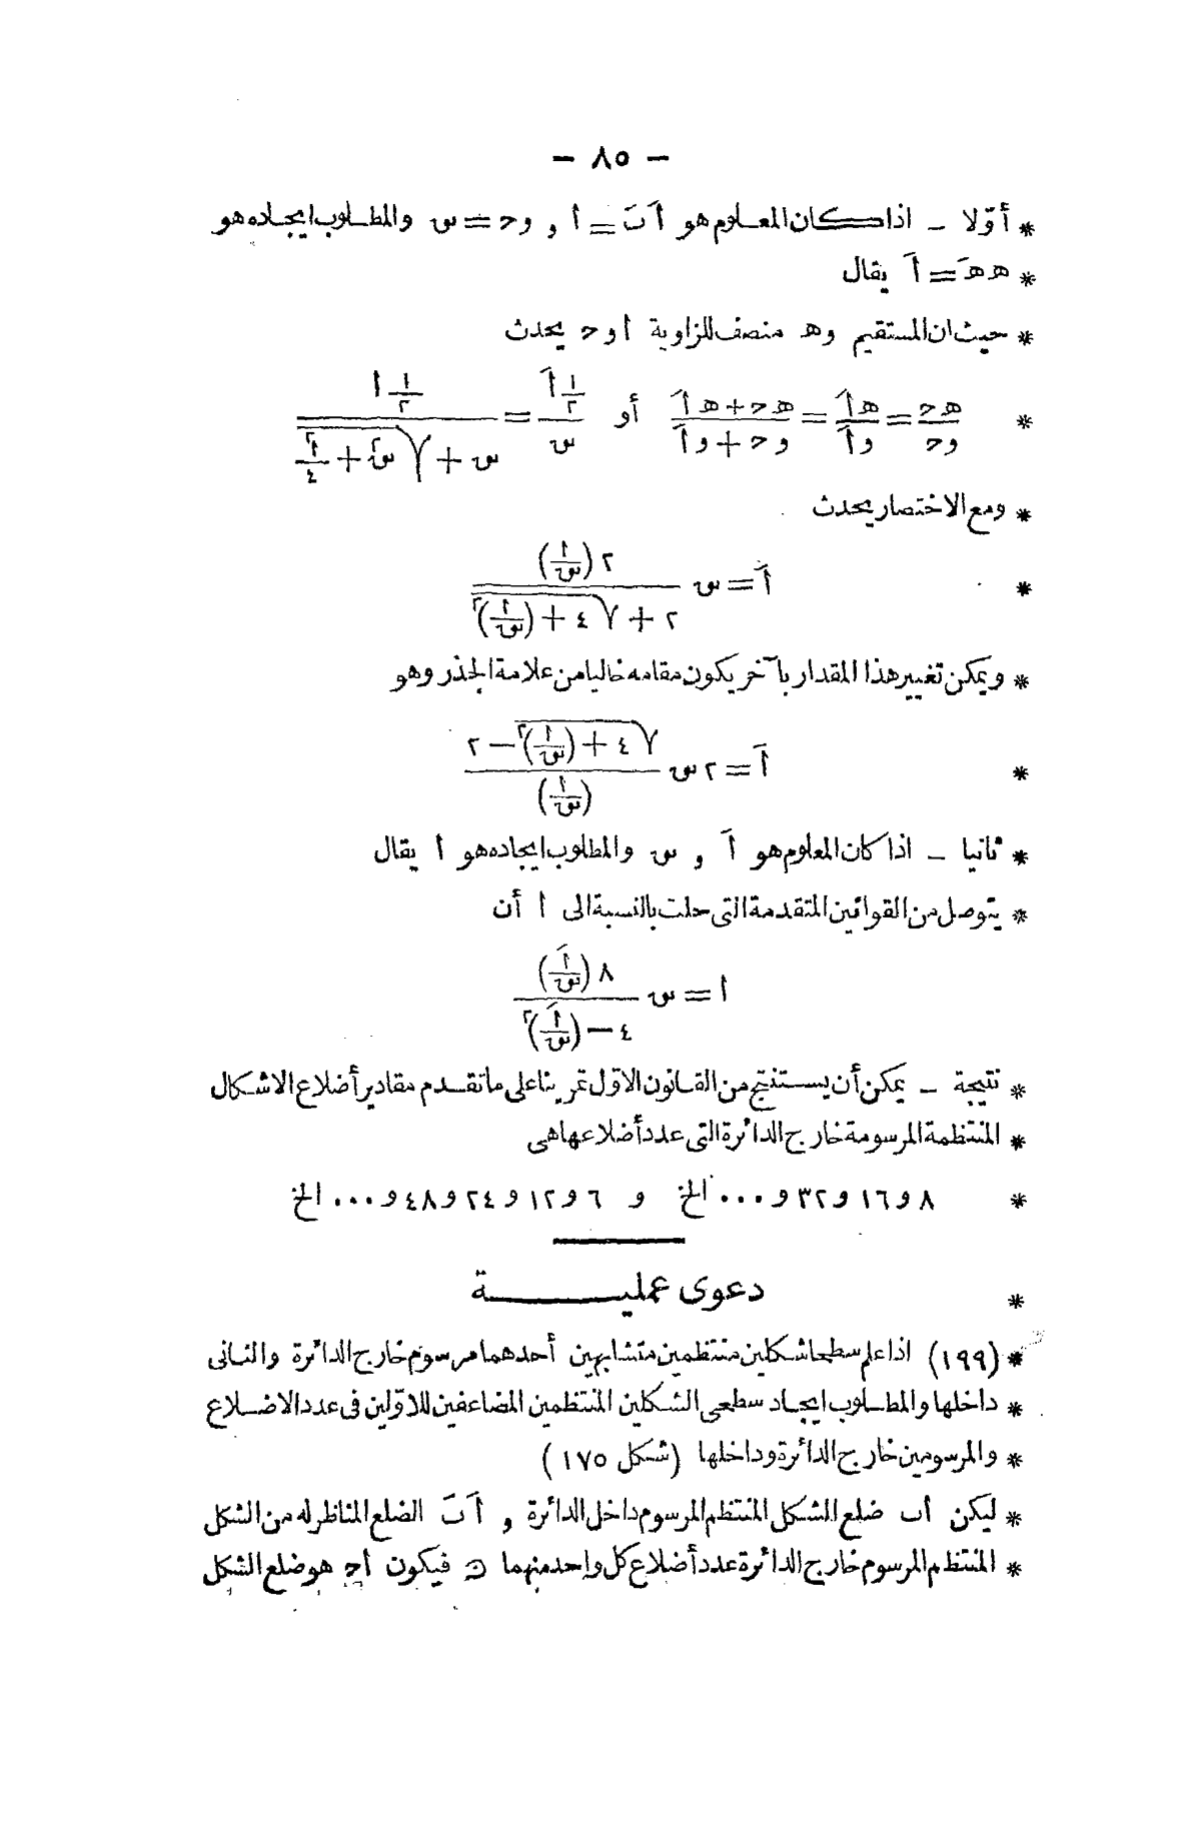 — ٨٥ —
* أوّلا — اذا كان المعلوم هو اَ بَ = ا , وح = س والمطلوب ايجاده هو
* هـ هـَ = اَ يقال
* حيث ان المستقيم وهـ منصف للزاوية ا و ح يحدث
* هـح/وح = هـاَ/واَ = (هـح + هـاَ)/(وح + واَ) أو (١/٢ اَ)/س = (١/٢ ا)/(س + √(س٢ + ا٢/٤))
* ومع الاختصار يحدث
* اَ = س (٢(ا/س))/(٢ + √(٤ + (ا/س)٢))
* ويمكن تغيير هذا المقدار بآخر يكون مقامه خاليا من علامة الجذر وهو
* اَ = ٢ س (√(٤ + (ا/س)٢) — ٢)/(ا/س)
* ثانيا — اذا كان المعلوم هو اَ , س والمطلوب ايجاده هو ا يقال
* يتوصل من القوانين المتقدمة التى حلت بالنسبة الى ا أن
ا = س (٨(اَ/س))/(٤ — (اَ/س)٢)
* نتيجة — يمكن أن يستنتج من القانون الاوّل تمرينا على ما تقدم مقادير أضلاع الاشكال
* المنتظمة المرسومة خارج الدائرة التى عدد أضلاعها هى
* ٨ و ١٦ و ٣٢ و ... الخ و ٦ و ١٢ و ٢٤ و ٤٨ و ... الخ
* دعوى عملية
* (١٩٩) اذا علم سطحا شكلين منتظمين متشابهين أحدهما مرسوم خارج الدائرة والثانى
* داخلها والمطلوب ايجاد سطحى الشكلين المنتظمين المضاعفين للاوّلين فى عدد الاضلاع
* والمرسومين خارج الدائرة وداخلها (شكل ١٧٥)
* ليكن اب ضلع الشكل المنتظم المرسوم داخل الدائرة , اَ بَ الضلع المناظر له من الشكل
* المنتظم المرسوم خارج الدائرة عدد أضلاع كل واحد منهما ن فيكون اح هو ضلع الشكل